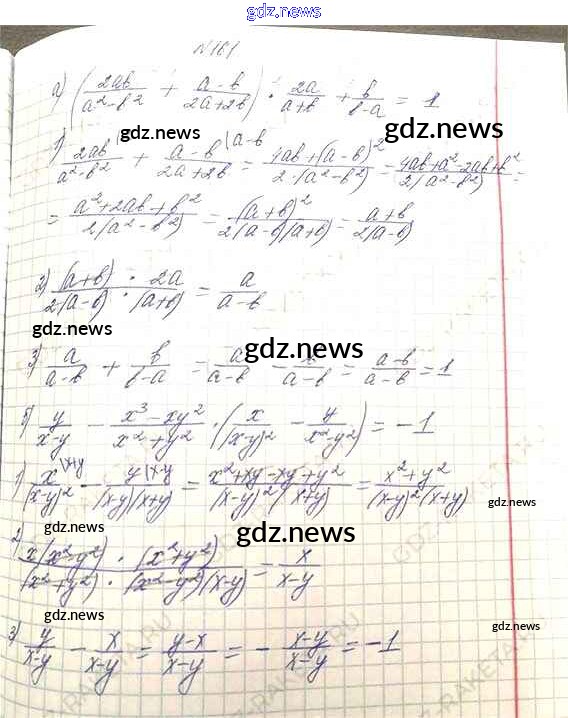 gdz.news
N 161
а) (2ab/(a²-b²) + (a-b)/(2a+2b)) · 2a/(a+b) + b/(b-a) = 1
gdz.news
gdz.news
1) 2ab/(a²-b²) + (a-b)/(2a+2b) |a-b = (4ab+(a-b)²)/(2·(a²-b²)) = (4ab+a²-2ab+b²)/(2(a²-b²)) =
= (a²+2ab+b²)/(2(a²-b²)) = (a+b)²/(2(a-b)(a+b)) = (a+b)/(2(a-b))
gdz.news
2) (a+b) · 2a/(2(a-b) · (a+b)) = a/(a-b)
gdz.news
gdz.news
3) a/(a-b) + b/(b-a) = a/(a-b) - b/(a-b) = (a-b)/(a-b) = 1
б) y/(x-y) - (x³-xy²)/(x²+y²) · (x/(x-y)² - y/(x²-y²)) = -1
gdz.news
1) x/(x-y)² |x+y - y/((x-y)(x+y)) |x-y = (x²+xy-xy+y²)/((x-y)²(x+y)) = (x²+y²)/((x-y)²(x+y))
gdz.news
gdz.news
gdz.news
2) x(x²-y²) · (x²+y²)/((x²+y²) · (x²-y²)(x-y)) = x/(x-y)
gdz.news
3) y/(x-y) - x/(x-y) = (y-x)/(x-y) = - (x-y)/(x-y) = -1
gdz.news